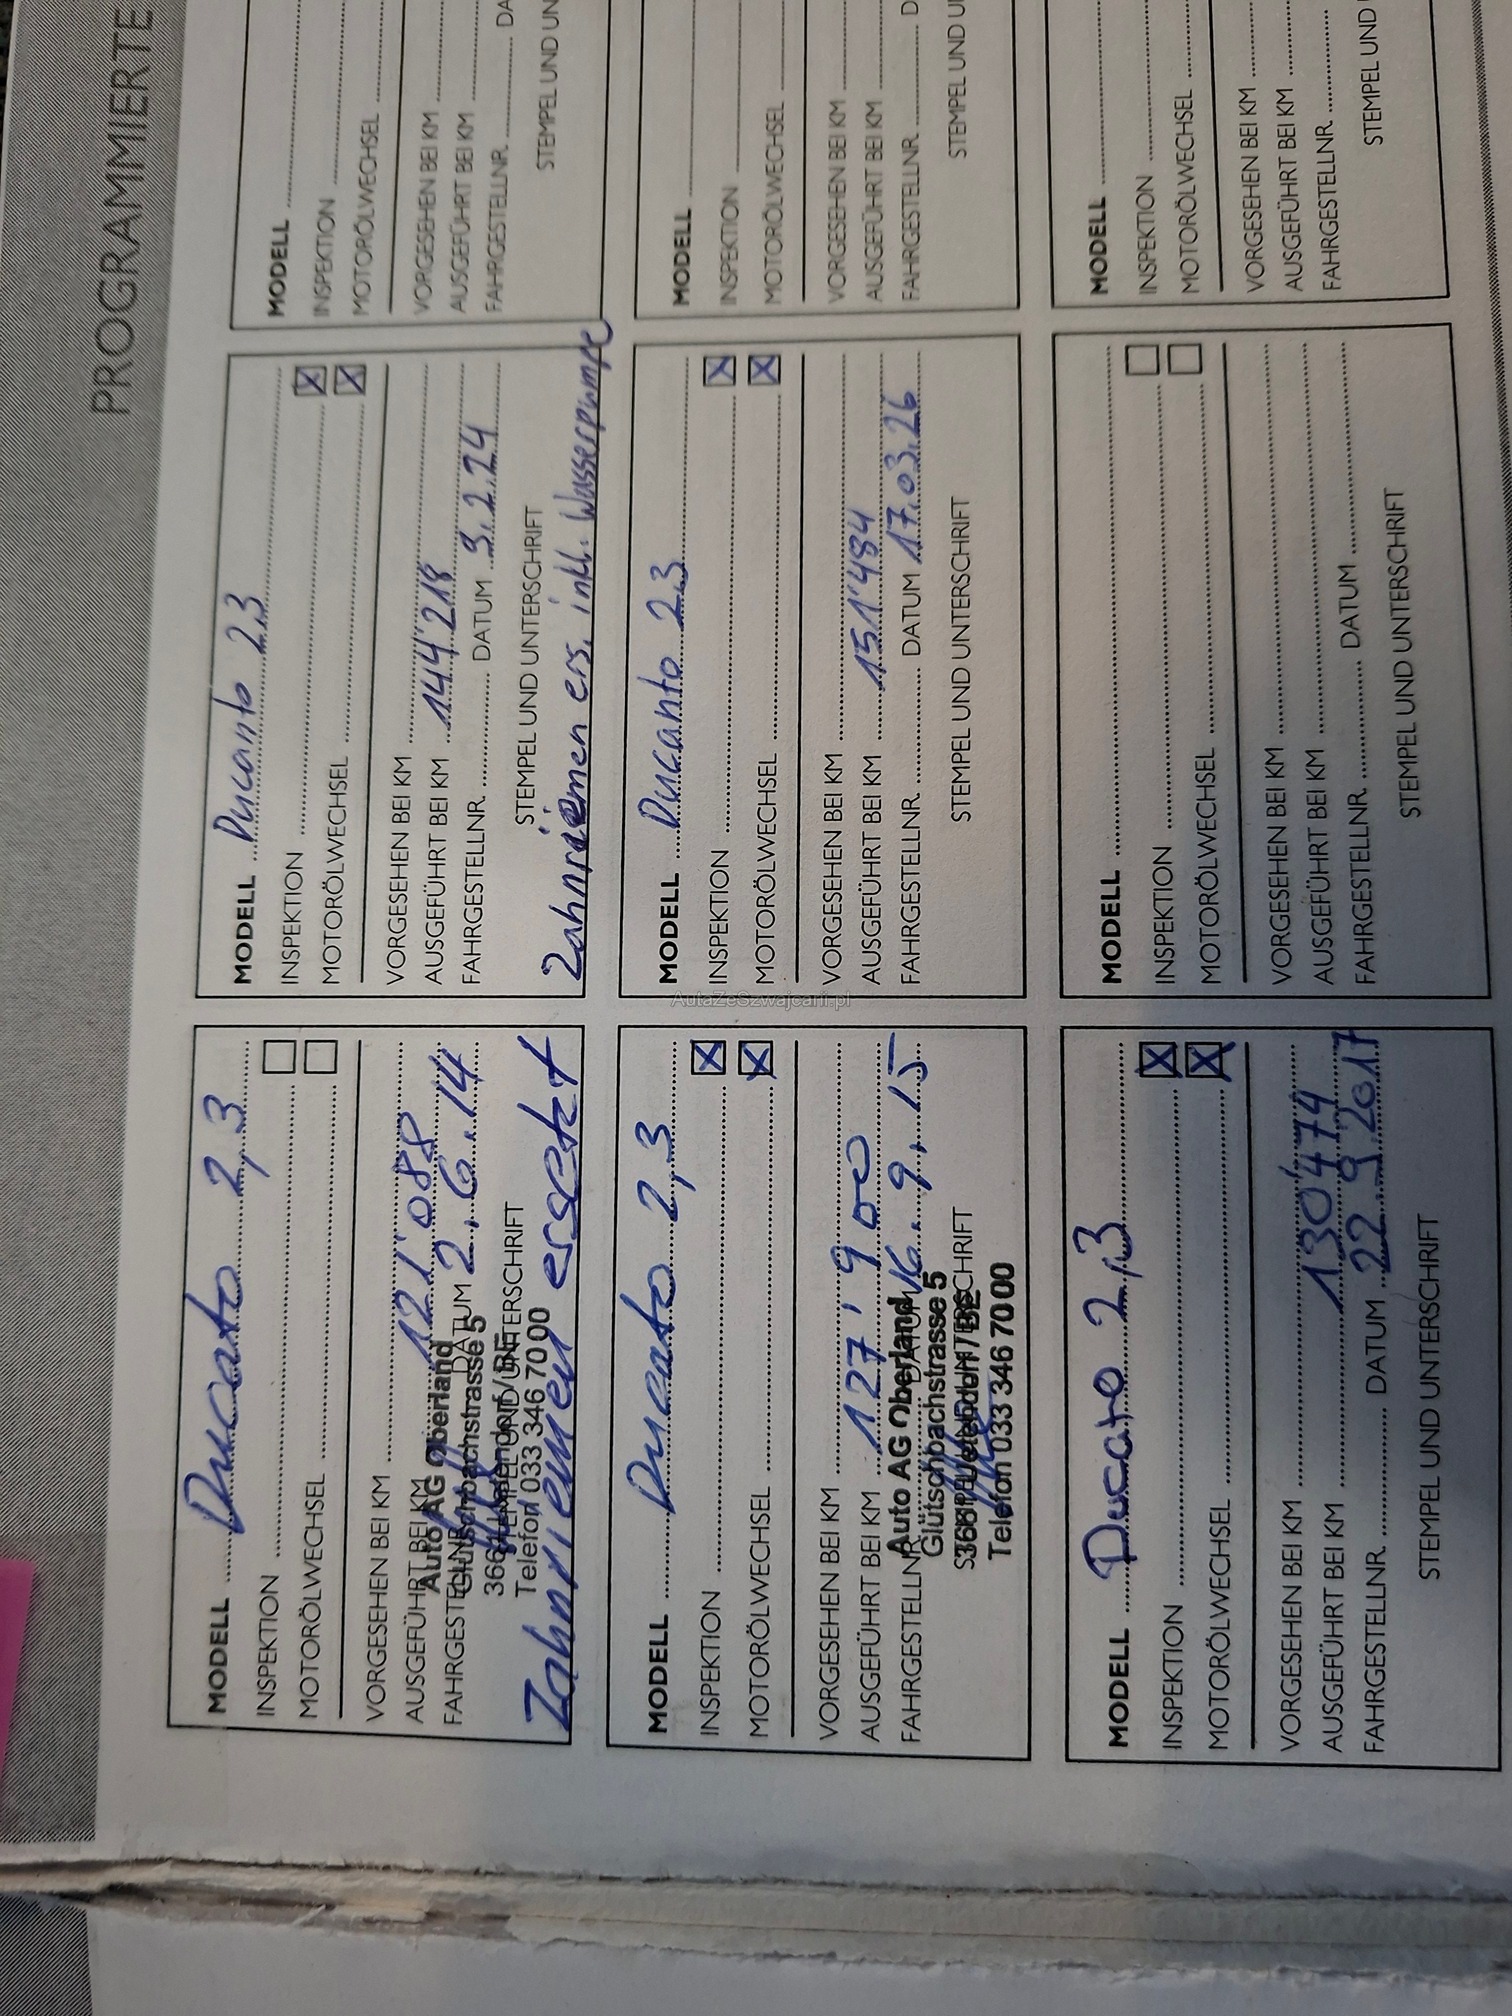 PROGRAMMIERTE
MODELL Ducato 2,3
INSPEKTION
MOTORÖLWECHSEL
VORGESEHEN BEI KM
AUSGEFÜHRT BEI KM 121'088
FAHRGESTELLNR. DATUM 2.6.14
STEMPEL UND UNTERSCHRIFT
Auto AG Oberland
Glütschbachstrasse 5
3661 Uetendorf / BE
Telefon 033 346 70 00
Zahnriemen ersetzt
MODELL Ducato 2,3
INSPEKTION X
MOTORÖLWECHSEL X
VORGESEHEN BEI KM
AUSGEFÜHRT BEI KM 127'900
FAHRGESTELLNR. DATUM 16.9.15
STEMPEL UND UNTERSCHRIFT
Auto AG Oberland
Glütschbachstrasse 5
3661 Uetendorf / BE
Telefon 033 346 70 00
MODELL Ducato 2,3
INSPEKTION X
MOTORÖLWECHSEL X
VORGESEHEN BEI KM
AUSGEFÜHRT BEI KM 130'474
FAHRGESTELLNR. DATUM 22.9.2017
STEMPEL UND UNTERSCHRIFT
MODELL Ducanto 2.3
INSPEKTION X
MOTORÖLWECHSEL X
VORGESEHEN BEI KM
AUSGEFÜHRT BEI KM 144'218
FAHRGESTELLNR. DATUM 9.2.24
STEMPEL UND UNTERSCHRIFT
Zahnriemen ers. inkl. Wasserpumpe
MODELL Ducanto 2.3
INSPEKTION X
MOTORÖLWECHSEL X
VORGESEHEN BEI KM
AUSGEFÜHRT BEI KM 151'484
FAHRGESTELLNR. DATUM 17.03.26
STEMPEL UND UNTERSCHRIFT
MODELL
INSPEKTION
MOTORÖLWECHSEL
VORGESEHEN BEI KM
AUSGEFÜHRT BEI KM
FAHRGESTELLNR. DATUM
STEMPEL UND UNTERSCHRIFT
MODELL
INSPEKTION
MOTORÖLWECHSEL
VORGESEHEN BEI KM
AUSGEFÜHRT BEI KM
FAHRGESTELLNR. DA
STEMPEL UND UN
MODELL
INSPEKTION
MOTORÖLWECHSEL
VORGESEHEN BEI KM
AUSGEFÜHRT BEI KM
FAHRGESTELLNR. D
STEMPEL UND U
MODELL
INSPEKTION
MOTORÖLWECHSEL
VORGESEHEN BEI KM
AUSGEFÜHRT BEI KM
FAHRGESTELLNR.
STEMPEL UND
AutaZeSzwajcarii.pl